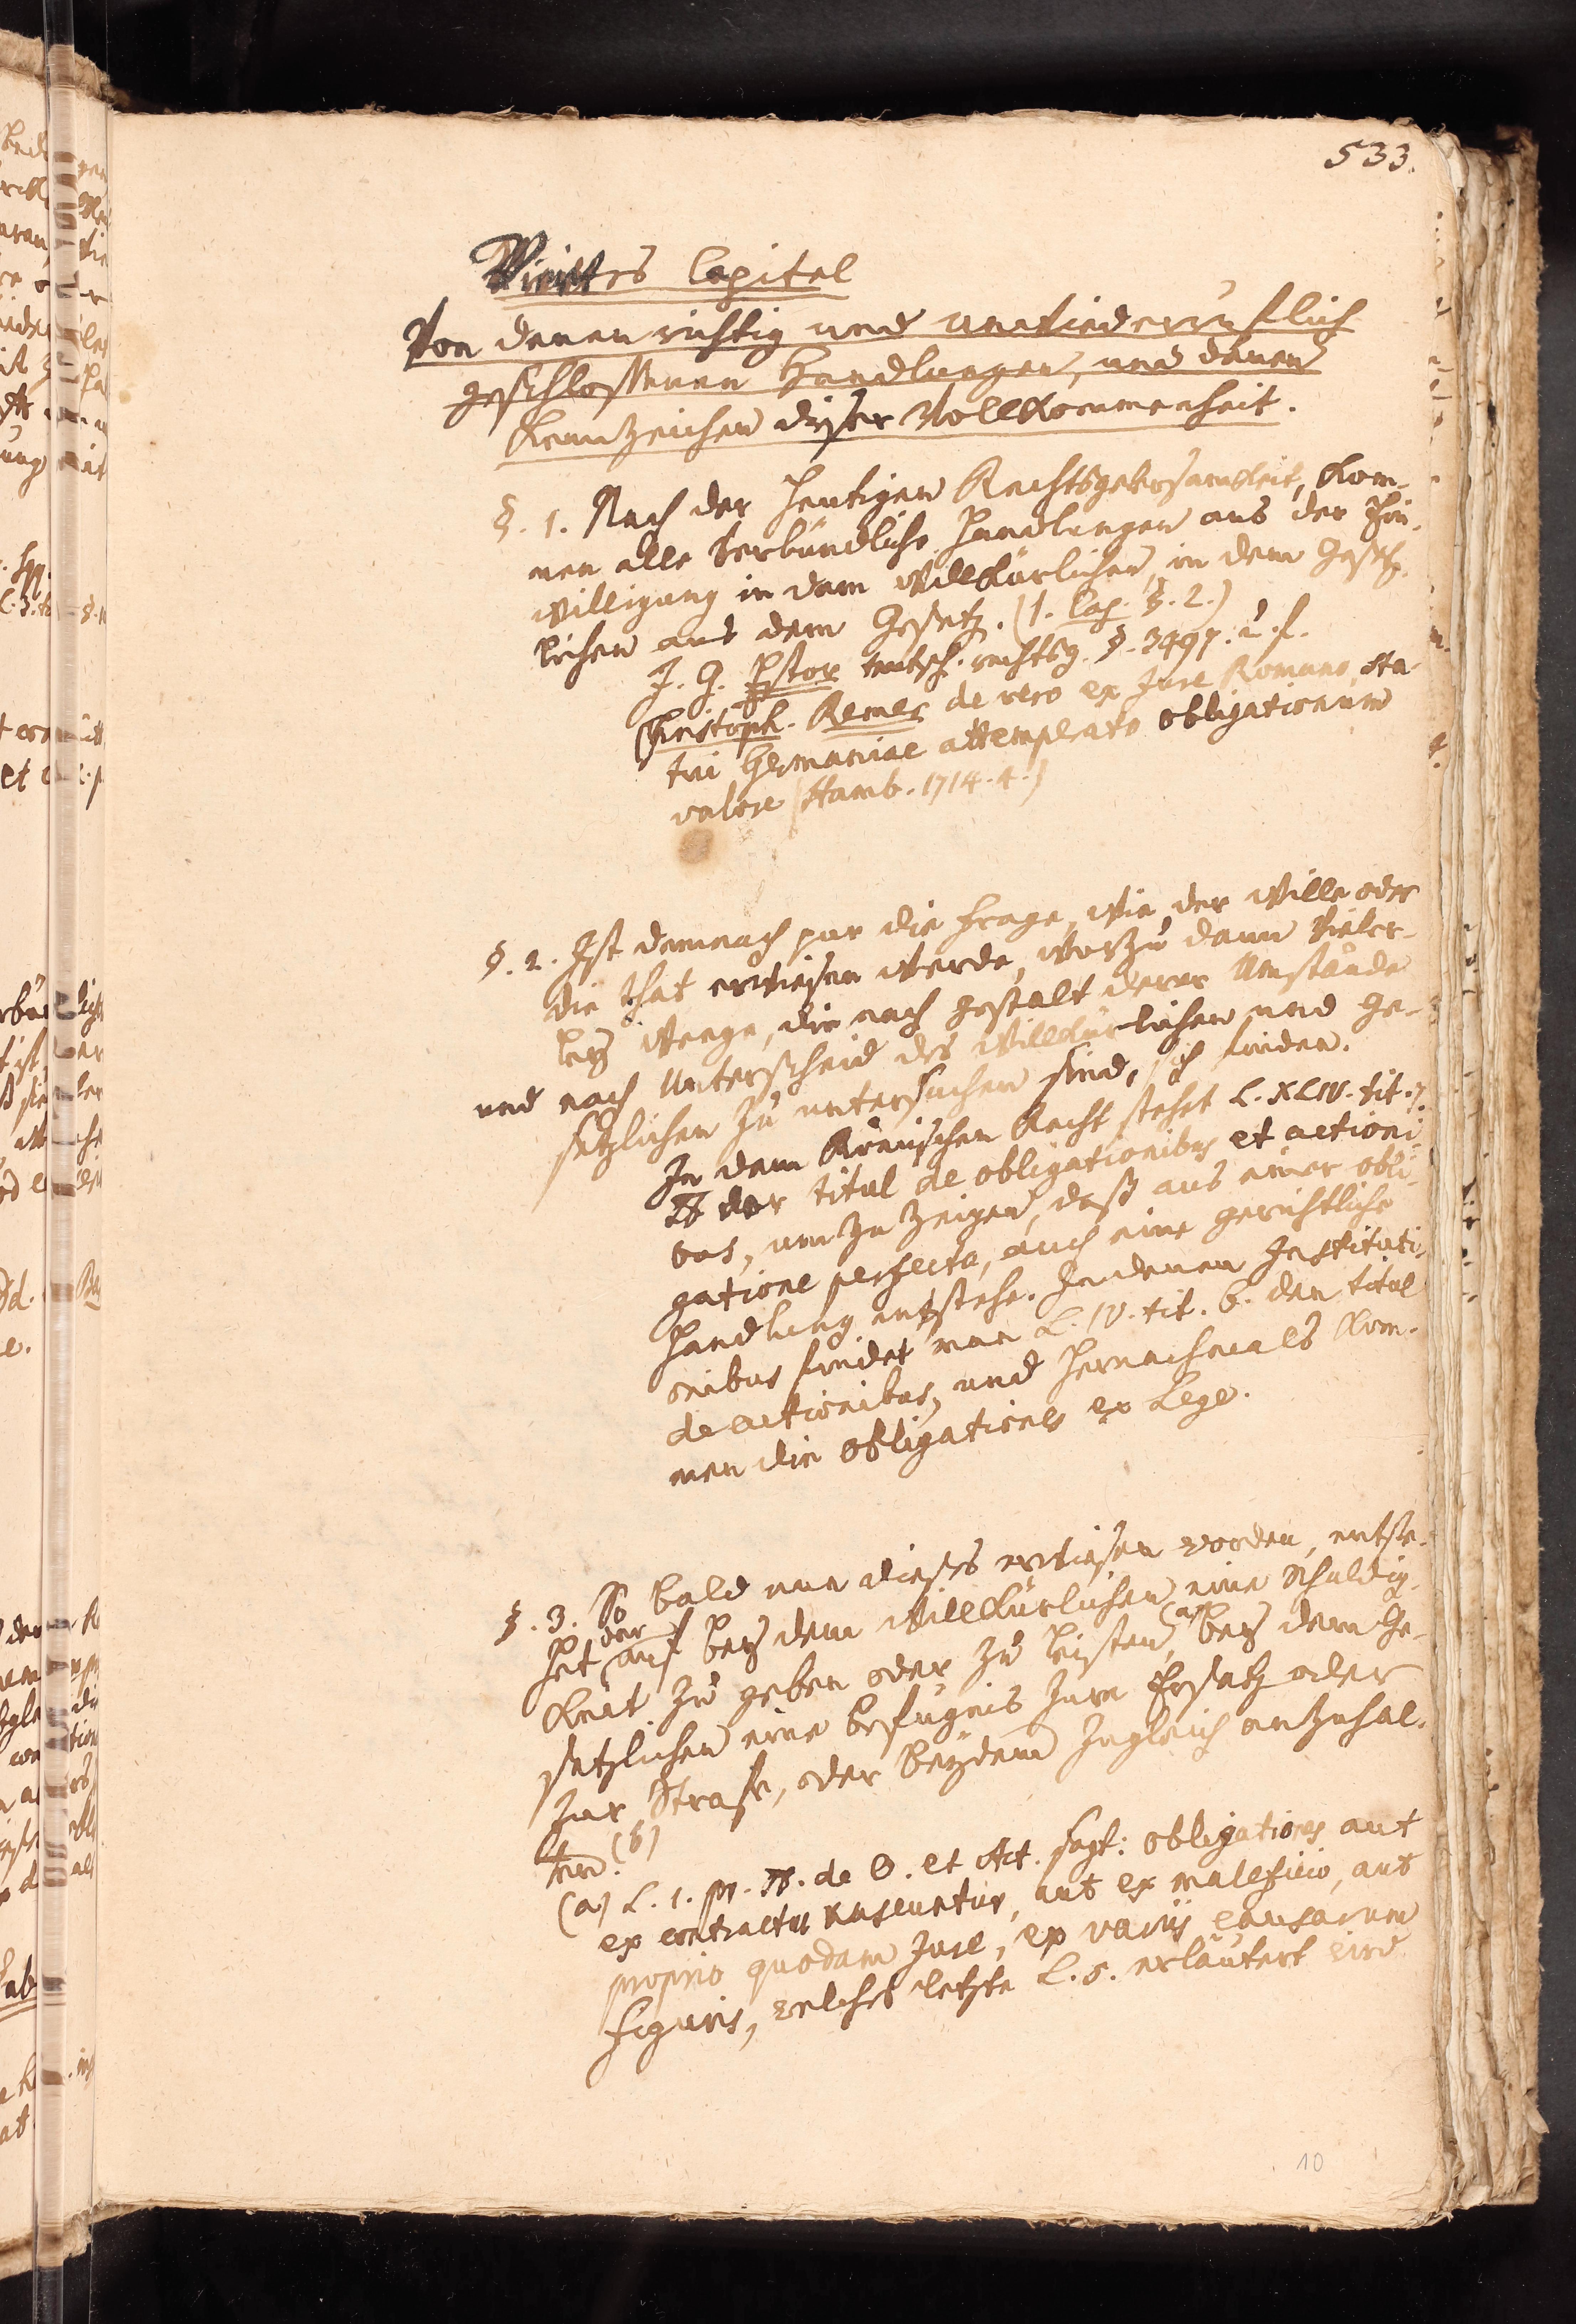 533.
Viertes Capitel
Von denen richtig und unwiederruflich
geschlossenen Handlungen, und denen
Kennzeichen dieser Vollkommenheit.
§. 1. Nach der heutigen Rechtsgelersamkeit, kom-
men alle verbündliche Handlungen aus der Ein-
willigung in dem willkürlichen, in dem gesetz-
lichen aus dem Gesetz. (1. Cap. §. 2.)
J. G. Estor teutsch. rechtsg. §. 3497. u. f.
Christoph. Remer de vero ex Jure Romano, sta-
tui Germaniae attemperato obligationum
valore (Hamb. 1714. 4.)
§. 2. Ist demnach pur die Frage, wie der Wille oder
die That erwiesen werde, worzu dann vieler-
ley Weege, die nach gestalt derer Umstände
und nach Unterscheid des willkürlichen und ge-
setzlichen zu untersuchen sind, sich finden.
In dem Römischen Recht stehet L. XLIV. tit. 7.
ff der titul de obligationibus et actioni-
bus, um zu zeigen, daß aus einer obli-
gatione perfecta, auch eine gerichtliche
Handlung entstehe. In denen Instituti-
onibus findet man L. IV. tit. 6. den titul
de actionibus, und hernachmals kom-
men die obligationes ex Lege.
§. 3. So bald nun dieses erwiesen worden, entste-
het darauf bey dem willkürlichen eine Schuldig-
keit zu geben oder zu leisten, (a) bey dem ge-
setzlichen eine befugnis zum Ersatz oder
zur Strafe, oder beydem zugleich anzuhal-
ten. (b)
(a) L. 1. pr. ff. de O. et Act. sagt: obligationes aut
ex contractu nascuntur, aut ex maleficio, aut
proprio quodam Jure, ex variis causarum
figuris, welches letzte L. 5. erläutert wird
10